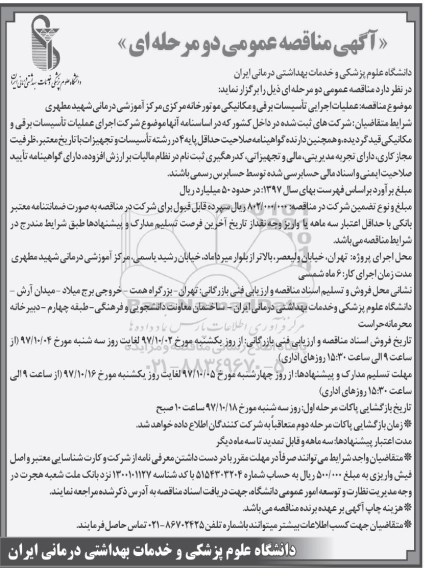 «آگهی مناقصه عمومی دو مرحله ای»
دانشگاه علوم پزشکی و خدمات بهداشتی درمانی ایران
در نظر دارد مناقصه عمومی دو مرحله ای ذیل را برگزار نماید:
موضوع مناقصه: عملیات اجرایی تأسیسات برقی و مکانیکی موتورخانه مرکزی مرکز آموزشی درمانی شهید مطهری
شرایط متقاضیان: شرکت های ثبت شده در داخل کشور که در اساسنامه آنها موضوع شرکت اجرای عملیات تأسیسات برقی و
مکانیکی قید گردیده، و همچنین دارنده گواهینامه صلاحیت حداقل پایه ۴ در رشته تأسیسات و تجهیزات با تاریخ معتبر، ظرفیت
مجاز کاری، دارای تجربه مدیریتی، مالی و تجهیزاتی، کد رهگیری ثبت نام در نظام مالیات بر ارزش افزوده، دارای گواهینامه تأیید
صلاحیت ایمنی و اسناد مالی حسابرسی شده توسط حسابرس رسمی باشند.
مبلغ برآورد بر اساس فهرست بهای سال ۱۳۹۷: در حدود ۵۰ میلیارد ریال
مبلغ و نوع تضمین شرکت در مناقصه: ۸۰۲/۰۰۰/۰۰۰ ریال سپرده قابل قبول برای شرکت در مناقصه به صورت ضمانتنامه معتبر
بانکی با حداقل اعتبار سه ماهه یا واریز وجه نقد از تاریخ آخرین فرصت تسلیم مدارک و پیشنهادها طبق شرایط مندرج در
شرایط مناقصه می باشد.
محل اجرای پروژه: تهران، خیابان ولیعصر، بالاتر از بلوار میرداماد، خیابان رشید یاسمی، مرکز آموزشی درمانی شهید مطهری
مدت زمان اجرای کار: ۶ ماه شمسی
نشانی محل فروش و تسلیم اسناد مناقصه و ارزیابی فنی بازرگانی: تهران - بزرگراه همت - خروجی برج میلاد - میدان آرش -
دانشگاه علوم پزشکی و خدمات بهداشتی درمانی ایران - ساختمان معاونت دانشجویی و فرهنگی - طبقه چهارم - دبیرخانه
محرمانه حراست
تاریخ فروش اسناد مناقصه و ارزیابی فنی بازرگانی: از روز یکشنبه مورخ ۹۷/۱۰/۰۲ لغایت روز سه شنبه مورخ ۹۷/۱۰/۰۴ (از
ساعت ۹ الی ساعت ۱۵:۳۰ روزهای اداری)
مهلت تسلیم مدارک و پیشنهادها: از روز چهارشنبه مورخ ۹۷/۱۰/۰۵ لغایت روز یکشنبه مورخ ۹۷/۱۰/۱۶ (از ساعت ۹ الی
ساعت ۱۵:۳۰ روزهای اداری)
تاریخ بازگشایی پاکات مرحله اول: روز سه شنبه مورخ ۹۷/۱۰/۱۸ ساعت ۱۰ صبح
※ زمان بازگشایی پاکات مرحله دوم متعاقباً به شرکت کنندگان اطلاع داده خواهد شد.
مدت اعتبار پیشنهادها: سه ماهه و قابل تمدید تا سه ماه دیگر
※ متقاضیان واجد شرایط می توانند صرفاً در مهلت مقرر با در دست داشتن معرفی نامه از شرکت و کارت شناسایی معتبر و اصل
فیش واریزی به مبلغ ۵۰۰/۰۰۰ ریال به حساب شماره ۵۱۵۴۳۰۳۲۰۴ با کد شناسه ۱۳۰۰۱۰۱۱۲۷ نزد بانک ملت شعبه هجرت در
وجه مدیریت نظارت و توسعه امور عمومی دانشگاه، جهت دریافت اسناد مناقصه به آدرس ذکر شده مراجعه نمایند.
※ هزینه چاپ آگهی بر عهده برنده مناقصه می باشد.
※ متقاضیان جهت کسب اطلاعات بیشتر میتوانند با شماره تلفن ۸۶۷۰۲۴۲۵-۰۲۱ تماس حاصل فرمایند.
دانشگاه علوم پزشکی و خدمات بهداشتی درمانی ایران